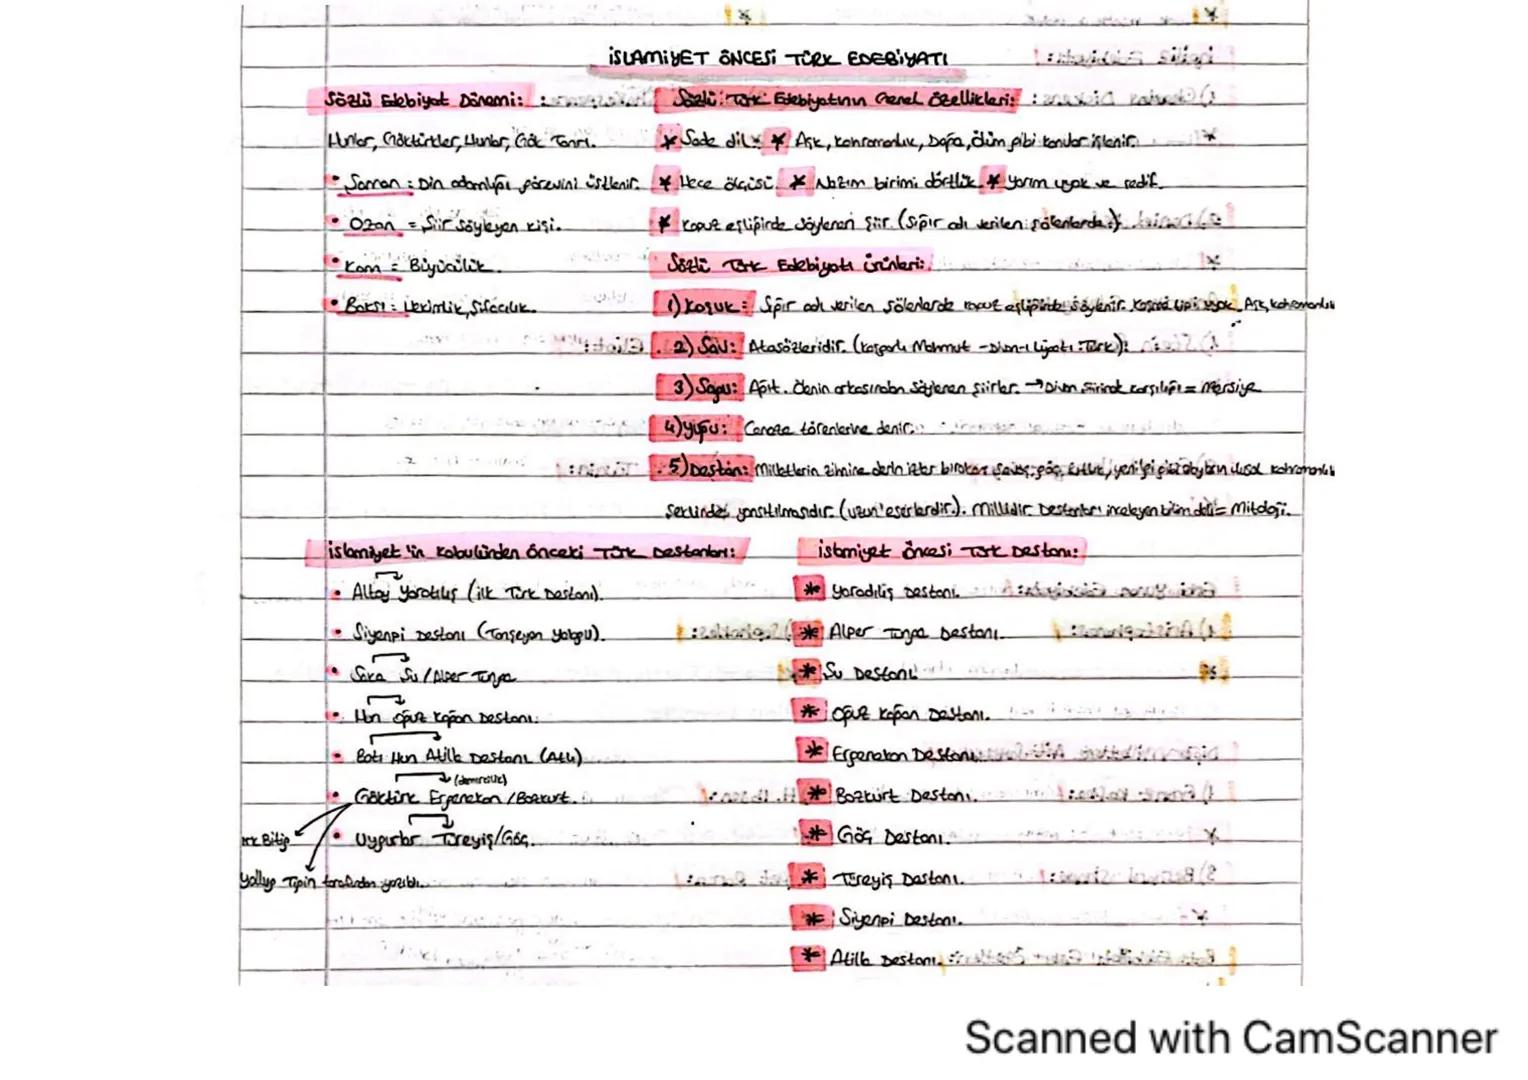 İSLAMİYET ÖNCESİ TÜRK EDEBİYATI
Sözlü Edebiyat Dönemi:
Hunlar, Göktürkler, Hunlar, Gök Tanrı.
• Şaman: Din adamlığı görevini üstlenir.
• Ozan = Şiir söyleyen kişi.
• Kam = Büyücülük.
• Baksı: Hekimlik, Şifacılık.
Sözlü Türk Edebiyatının Genel Özellikleri:
* Sade dil * Aşk, kahramanlık, Doğa, ölüm gibi konular işlenir.
* Hece ölçüsü * Nazım birimi dörtlük * Yarım uyak ve redif.
* Kopuz eşliğinde söylenen şiir. (Sığır adı verilen şölenlerde.)
Sözlü Türk Edebiyatı ürünleri:
1) Koşuk: Sığır adı verilen şölenlerde kopuz eşliğinde söylenir. Koşma tipi uyak. Aşk, kahramanlık
2) Sav: Atasözleridir. (Kaşgarlı Mahmut - Divan-ı Lügati Türk):
3) Sagu: Ağıt. Ölenin arkasından söylenen şiirler. → Divan şiirinde karşılığı = Mersiye
4) Yuğu: Cenaze törenlerine denir.
5) Destan: Milletlerin zihnine derin izler bırakan savaş, göç, kıtlık, yenilgi gibi olayların ulusal kahramanlık
Şeklinde yansıtılmasıdır. (Uzun eserlerdir.). Millidir Destanları inceleyen bilim dalı = Mitoloji.
İslamiyet'in Kabulünden Önceki Türk Destanları:
• Altay Yaratılış (ilk Türk Destanı).
• Siyenpi Destanı (Tanşeyan yabgu).
• Saka Şu/Alper Tunga
• Hun Oğuz Kağan Destanı.
• Batı Hun Atilla Destanı (Atlı)
(demircilik)
• Göktürk Ergenekon/Bozkurt.
• Uygurlar Türeyiş/Göç.
Bitig
Yollug Tigin tarafından yazıldı.
İslamiyet Öncesi Türk Destanı:
* Yaradılış Destanı.
* Alper Tunga Destanı.
* Şu Destanı
* Oğuz Kağan Destanı.
* Ergenekon Destanı.
* Bozkurt Destanı.
* Göç Destanı.
* Türeyiş Destanı.
* Siyenpi Destanı.
* Atilla Destanı.
Scanned with CamScanner